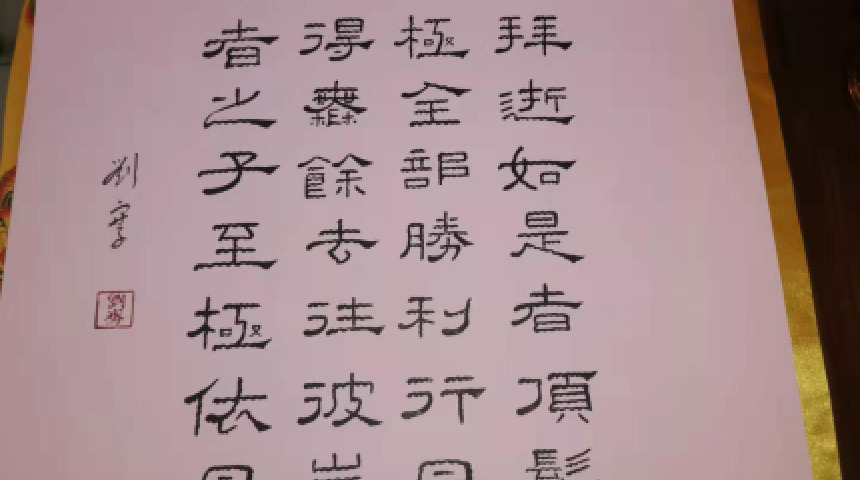 拜逝如是者頂髻
極全部勝利行
得無餘去往彼岸
者之子至極依
劉